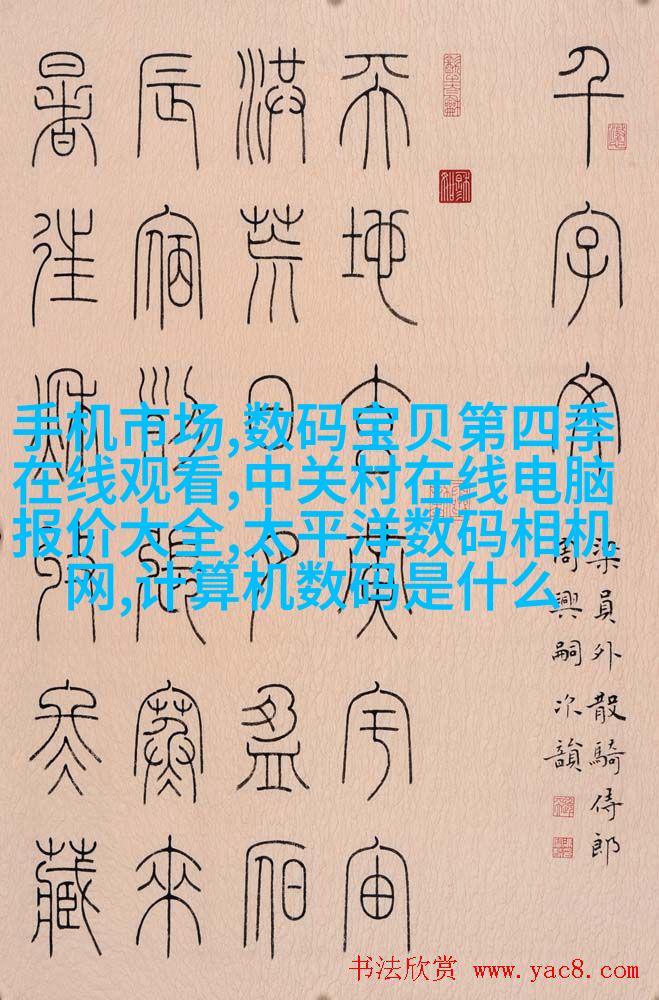 千字文
梁員外散騎侍郎
周興嗣次韻
天地玄黃宇宙
洪荒日月盈昃
辰宿列張寒來
暑往秋收冬藏
手机市场,数码宝贝第四季
在线观看,中关村在线电脑
报价大全,太平洋数码相机
网,计算机数码是什么
书法欣赏 www.yac8.com